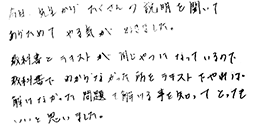 今日、先生からたくさんの説明を聞いて
あらためてやる気がでてきました。
教科書とテキストが同じやつになっているので
教科書でわからなかった所をテキストでやれば
解けなかった問題も解ける事を知ってとっても
いいと思いました。